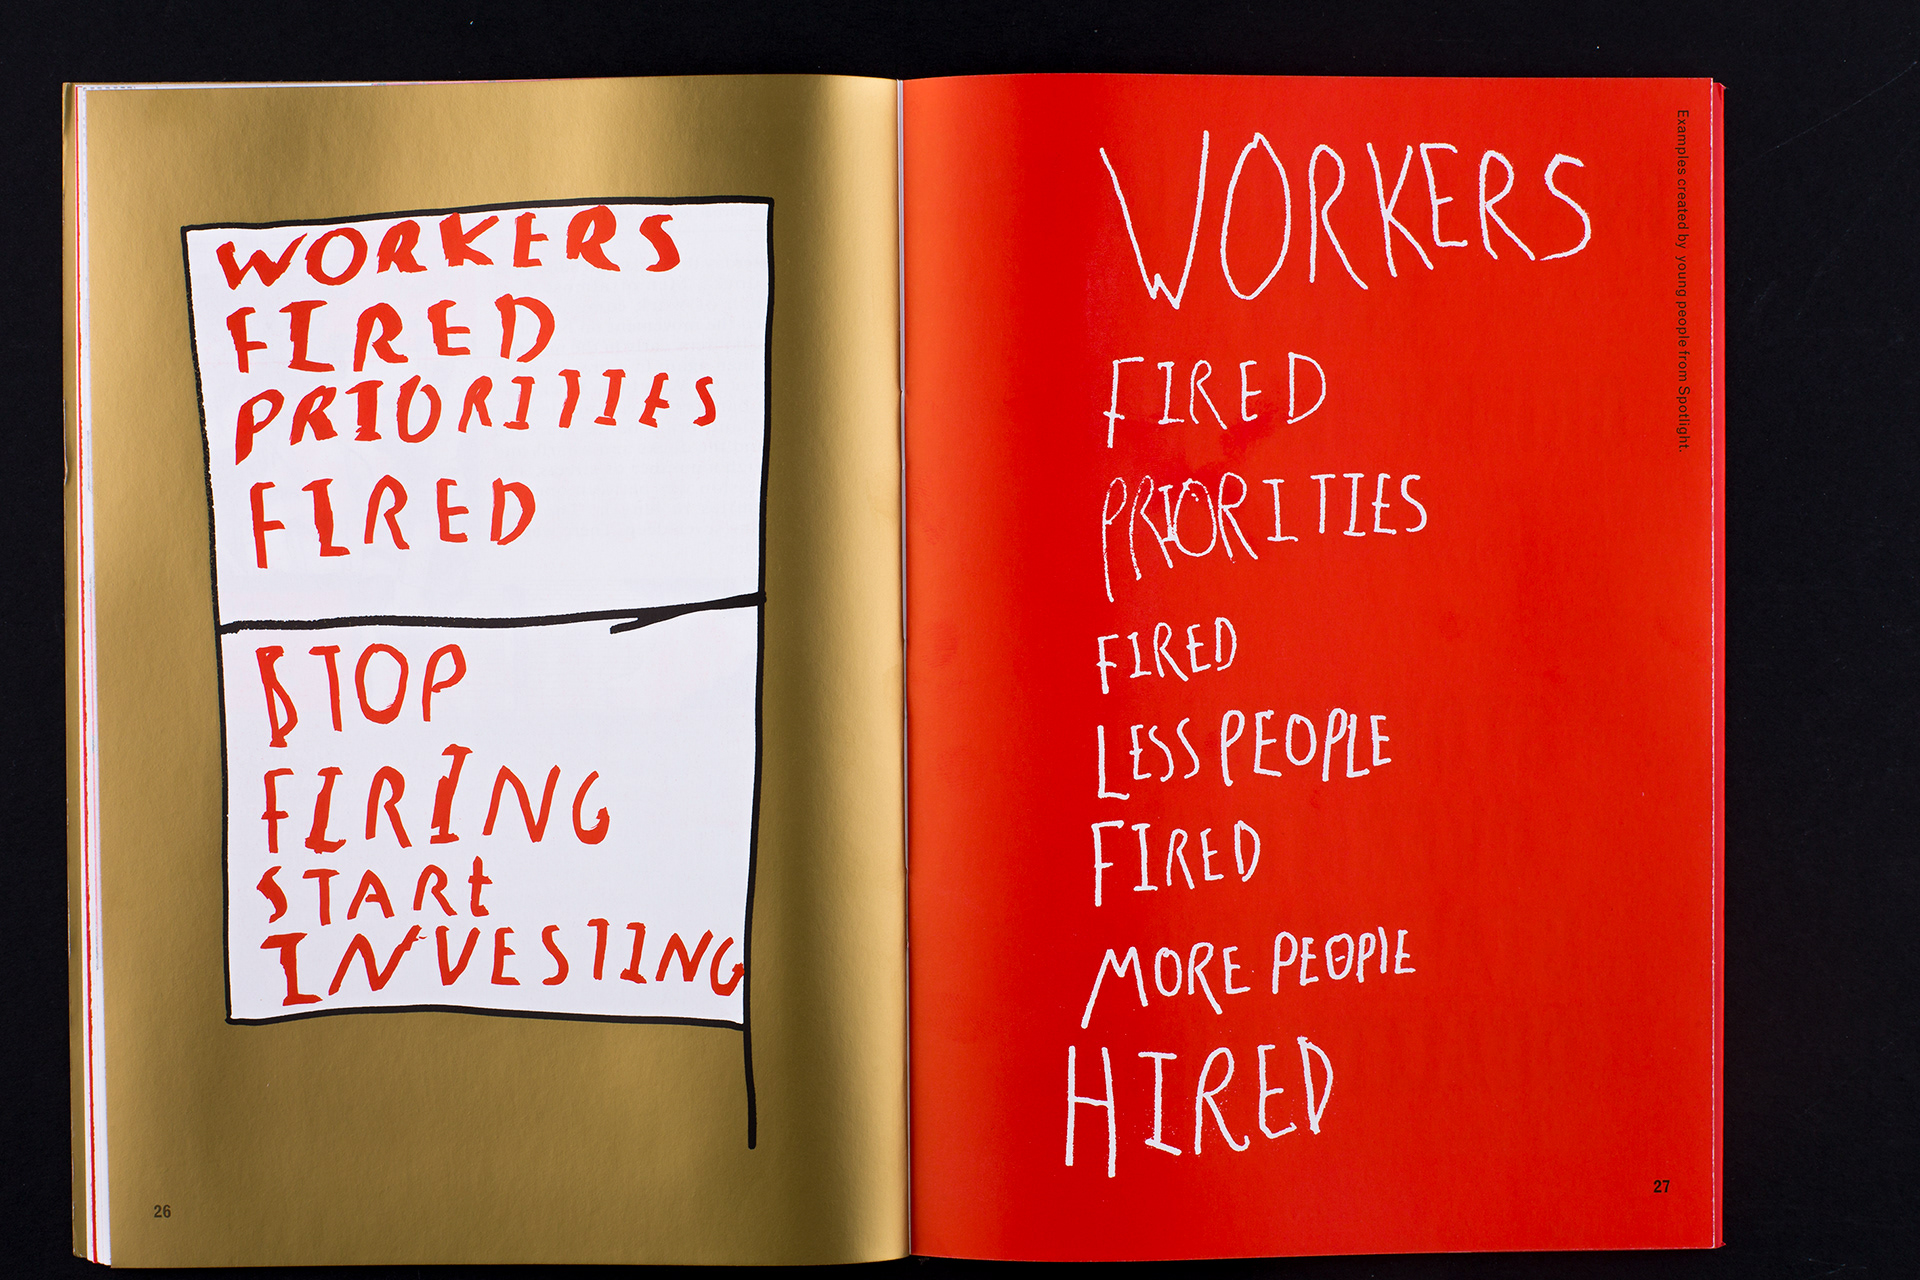 WORKERS
FIRED
PRIORITIES
FIRED
STOP
FIRING
START
INVESTING
26
WORKERS
FIRED
PRIORITIES
FIRED
LESS PEOPLE
FIRED
MORE PEOPLE
HIRED
Examples created by young people from Spotlight.
27